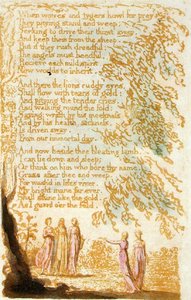 When wolves and tygers howl for prey
They pitying stand and weep
Seeking to drive their thirst away
And keep them from the sheep
But if they rush dreadful
The angels most heedful
Receive each mild spirit
New worlds to inherit.
And there the lions ruddy eyes,
Shall flow with tears of gold:
And pitying the tender cries,
And walking round the fold:
Saying: wrath by his meekness
And by his health, sickness,
Is driven away,
From our immortal day.
And now beside thee bleating lamb,
I can lie down and sleep,
Or think on him who bore thy name,
Graze after thee and weep.
For wash'd in lifes river,
My bright mane for ever,
Shall shine like the gold,
As I guard o'er the fold.